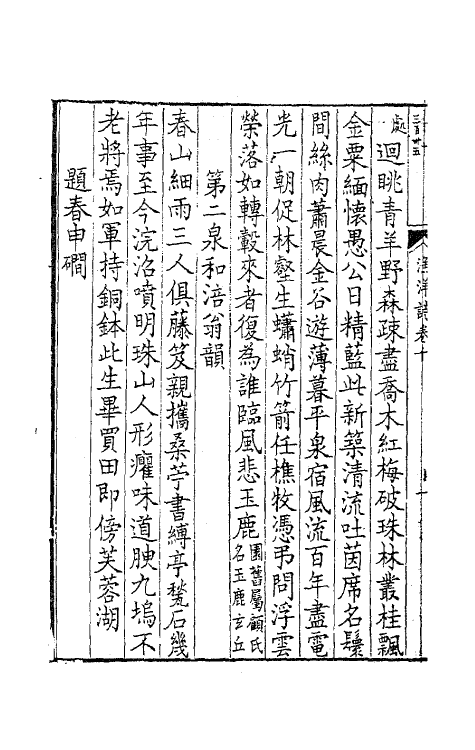 處迴眺青羊野森疎盡喬木紅梅破珠林叢桂飄
金粟緬懷愚公日精藍此新築清流吐茵席名鬟
間絲肉蕭晨金谷遊薄暮平泉宿風流百年盡電
光一朝促林壑生蠨蛸竹箭任樵牧憑弔問浮雲
榮落如轉轂來者復為誰臨風悲玉鹿園舊屬顧氏名玉鹿玄丘
第二泉和涪翁韻
春山細雨三人俱藤笈親攜桑苧書縛亭甃石幾
年事至今浣洺噴明珠山人形癯味道腴九塢不
老將焉如軍持銅鉢此生畢買田即傍芙蓉湖
題春申磵